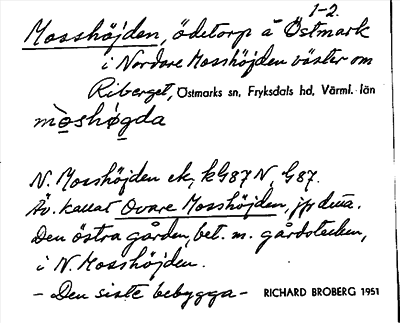 1-2.
Mosshöjden, ödetorp å Östmark
i Nordare Mosshöjden väster om
Riberget, Östmarks sn, Fryksdals hd, Värml. län
mòshøgda
N. Mosshöjden ek, kG87 N, G87.
Äv. kallat Ovare Mosshöjden, jfr detta.
Den östra gården, bet. m. gårdstecken,
i N. Mosshöjden.
- Den siste bebygga - RICHARD BROBERG 1951